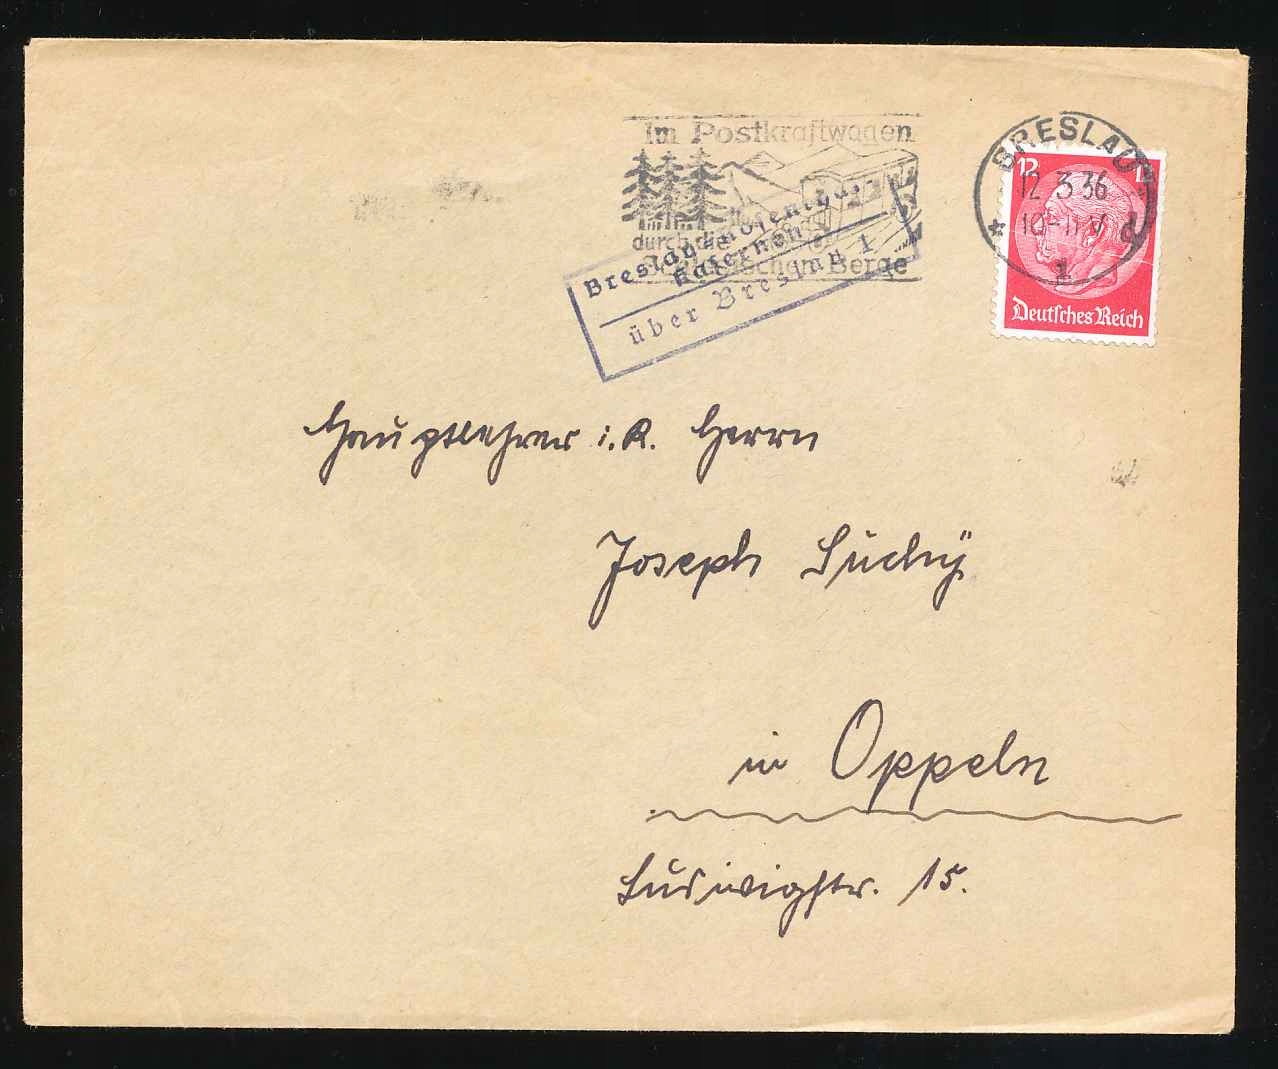 Im Postkraftwagen
durch die
Berge
BRESLAU
12.3.36
10-11 V
* 1 d
12
Deutsches Reich
Breslau=Rosenthal
Kasernen
über Breslau 1
Hauptlehrer i. R. Herrn
Joseph
in Oppeln
Ludwigstr. 15.